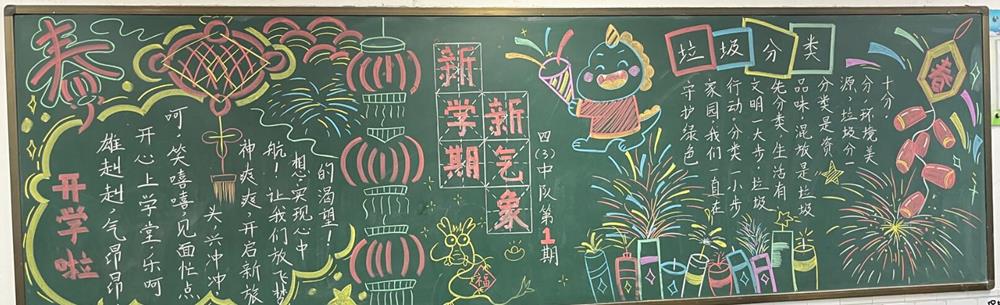 春
开学啦
雄赳赳,气昂昂,
开心上学堂!乐呵
呵,笑嘻嘻,见面忙点
头,兴冲冲
神爽爽,开启新旅
航!让我们放飞梦
想,实现心中
的渴望!
新学期
新气象
四(3)中队第1期
福
垃圾分类
守护绿色
家园,我们一直在
行动,分类一小步
文明一大步,垃圾
先分类,生活有
品味,混放是垃圾
分类是资
源,垃圾分
分,环境美
十分
春